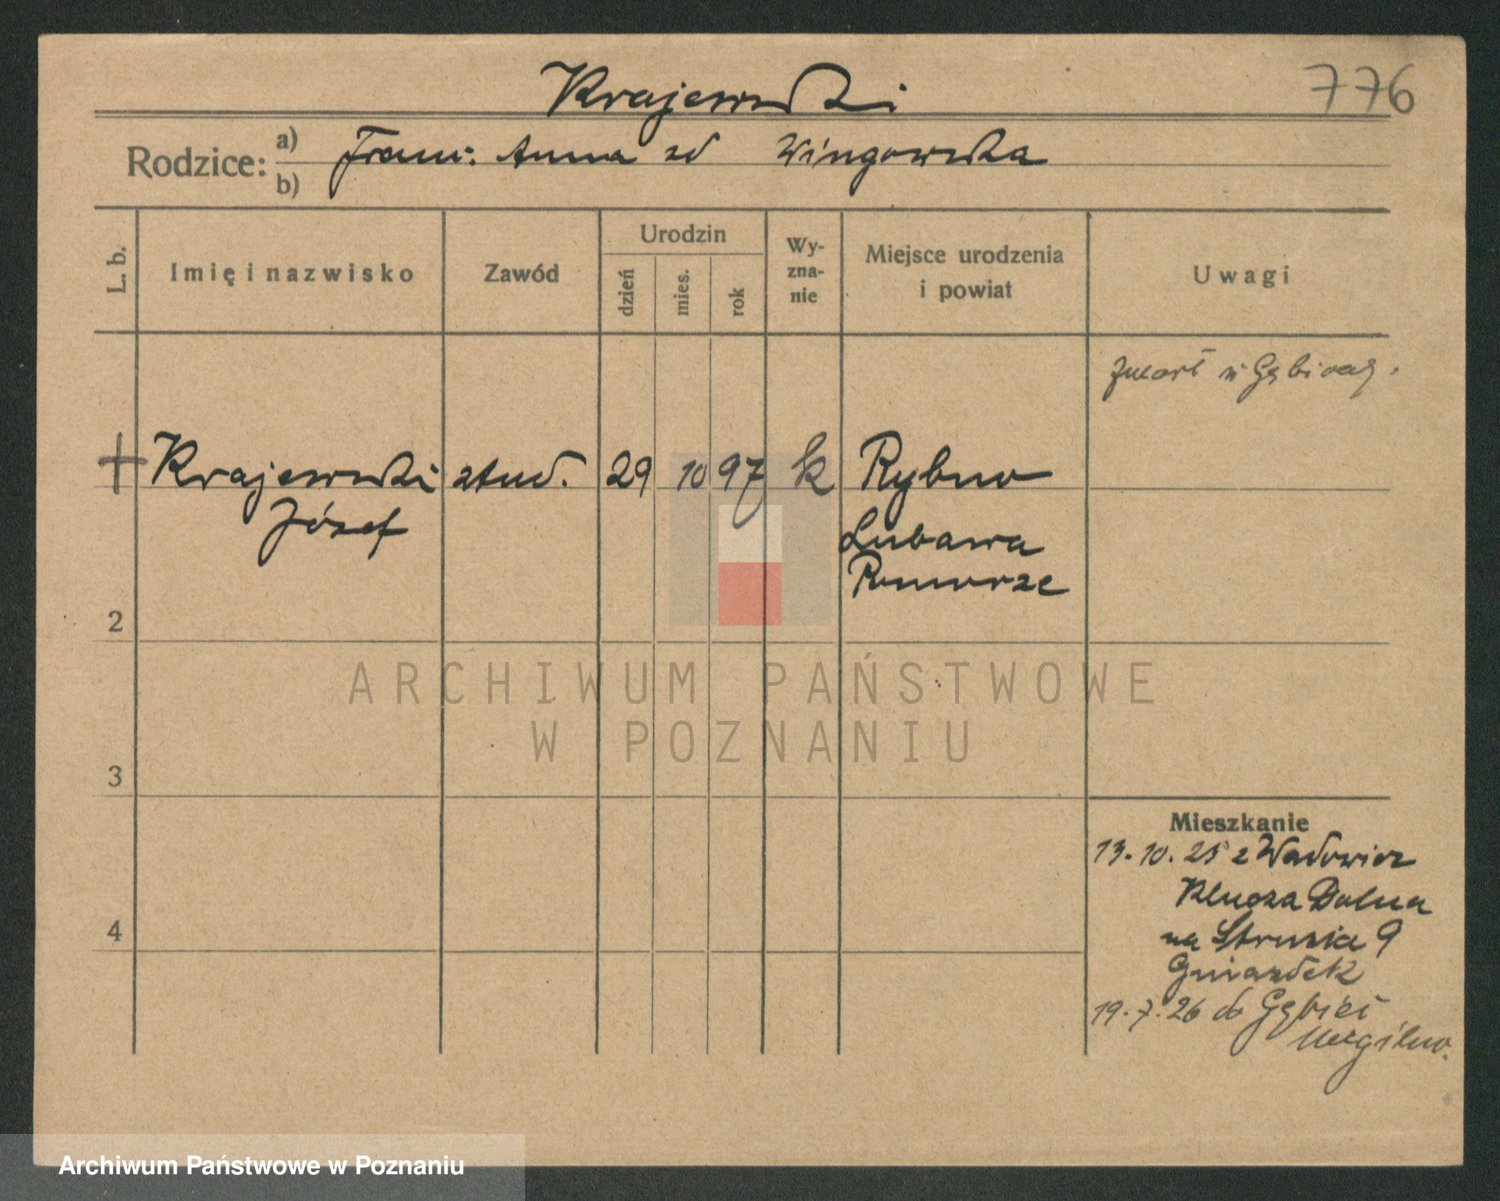 Krajewski
776
Rodzice: a) Franc. Anna zd Wingowska
b)
L. b.
Imię i nazwisko
Zawód
Urodzin
dzień
mies.
rok
Wy-
zna-
nie
Miejsce urodzenia
i powiat
Uwagi
zmarł w Gębicach.
+ Krajewski stud. 29 10 97 k Rybno
Józef
Lubawa
Pomorze
2
3
4
ARCHIWUM PAŃSTWOWE
W POZNANIU
Mieszkanie
13. 10. 25 z Wadowic
Klucza Dolna
na Strusia 9
Gniazdek
19. 7. 26 do Gębic
Mogilno.
Archiwum Państwowe w Poznaniu